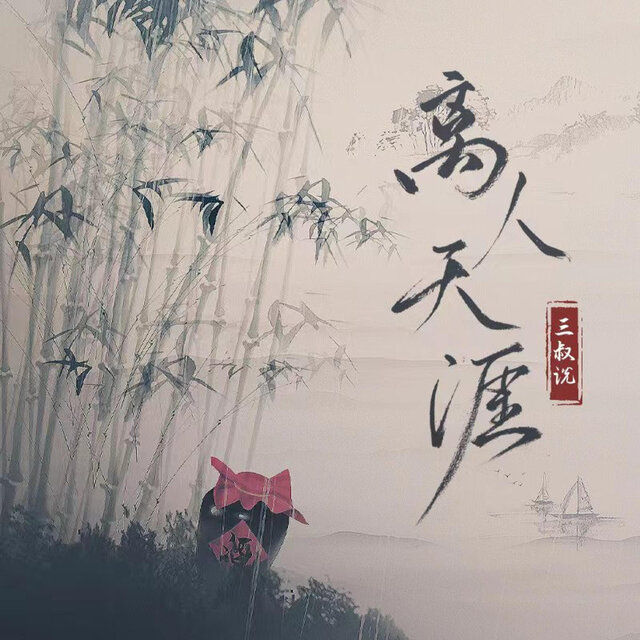 离人天涯
三叔说
酒